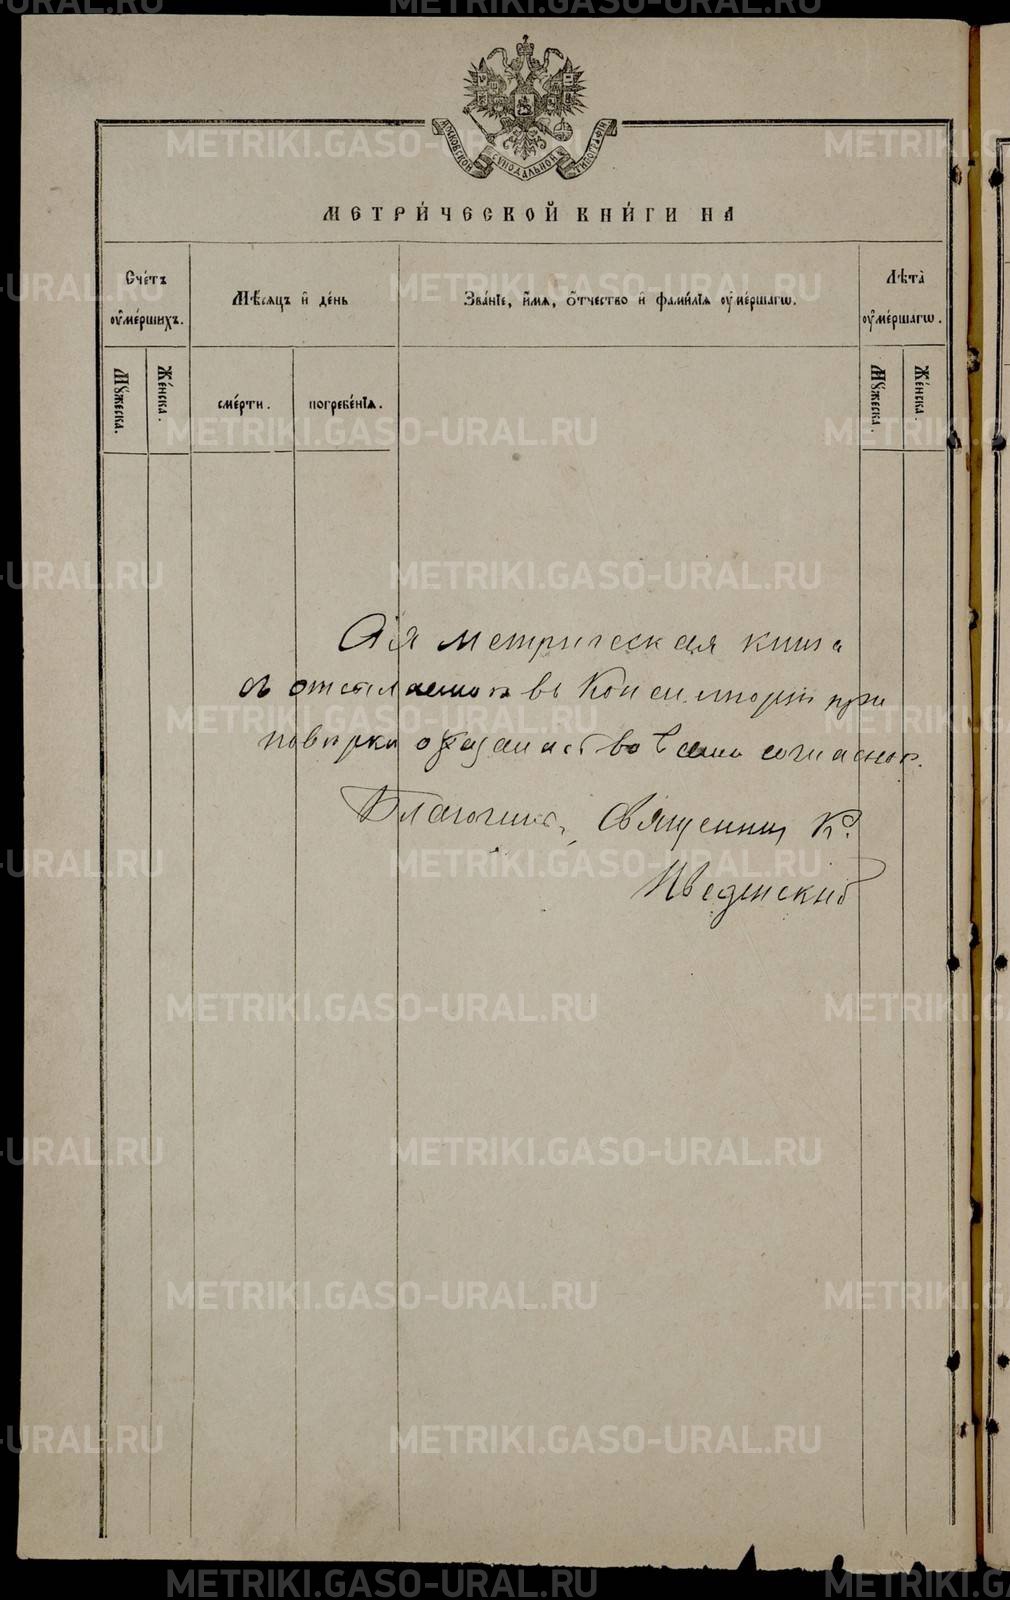 METRIKI.GASO-URAL.RU
МОСКОВСКОЙ СѴНОДАЛЬНОЙ ТИПОГРАФІИ
МЕТРИ́ЧЕСКОЙ КНИ́ГИ НА
Сче́тъ ᲂу҆ме́ршихъ.
Мѣ́сяцъ и҆ де́нь
Зва́нїе, и҆́мѧ, ѻ҆́тчество и҆ фами́лїѧ ᲂу҆ме́ршагѡ.
Лѣ́та ᲂу҆ме́ршагѡ.
Мꙋ́жеска.
Же́нска.
сме́рти.
погребе́нїѧ.
Мꙋ́жеска.
Же́нска.
Сія метрическая книга
съ отсылаемою въ Консисторію при
повѣркѣ оказалась во всемъ согласною.
Благочин. Священникъ К.
Введенскій